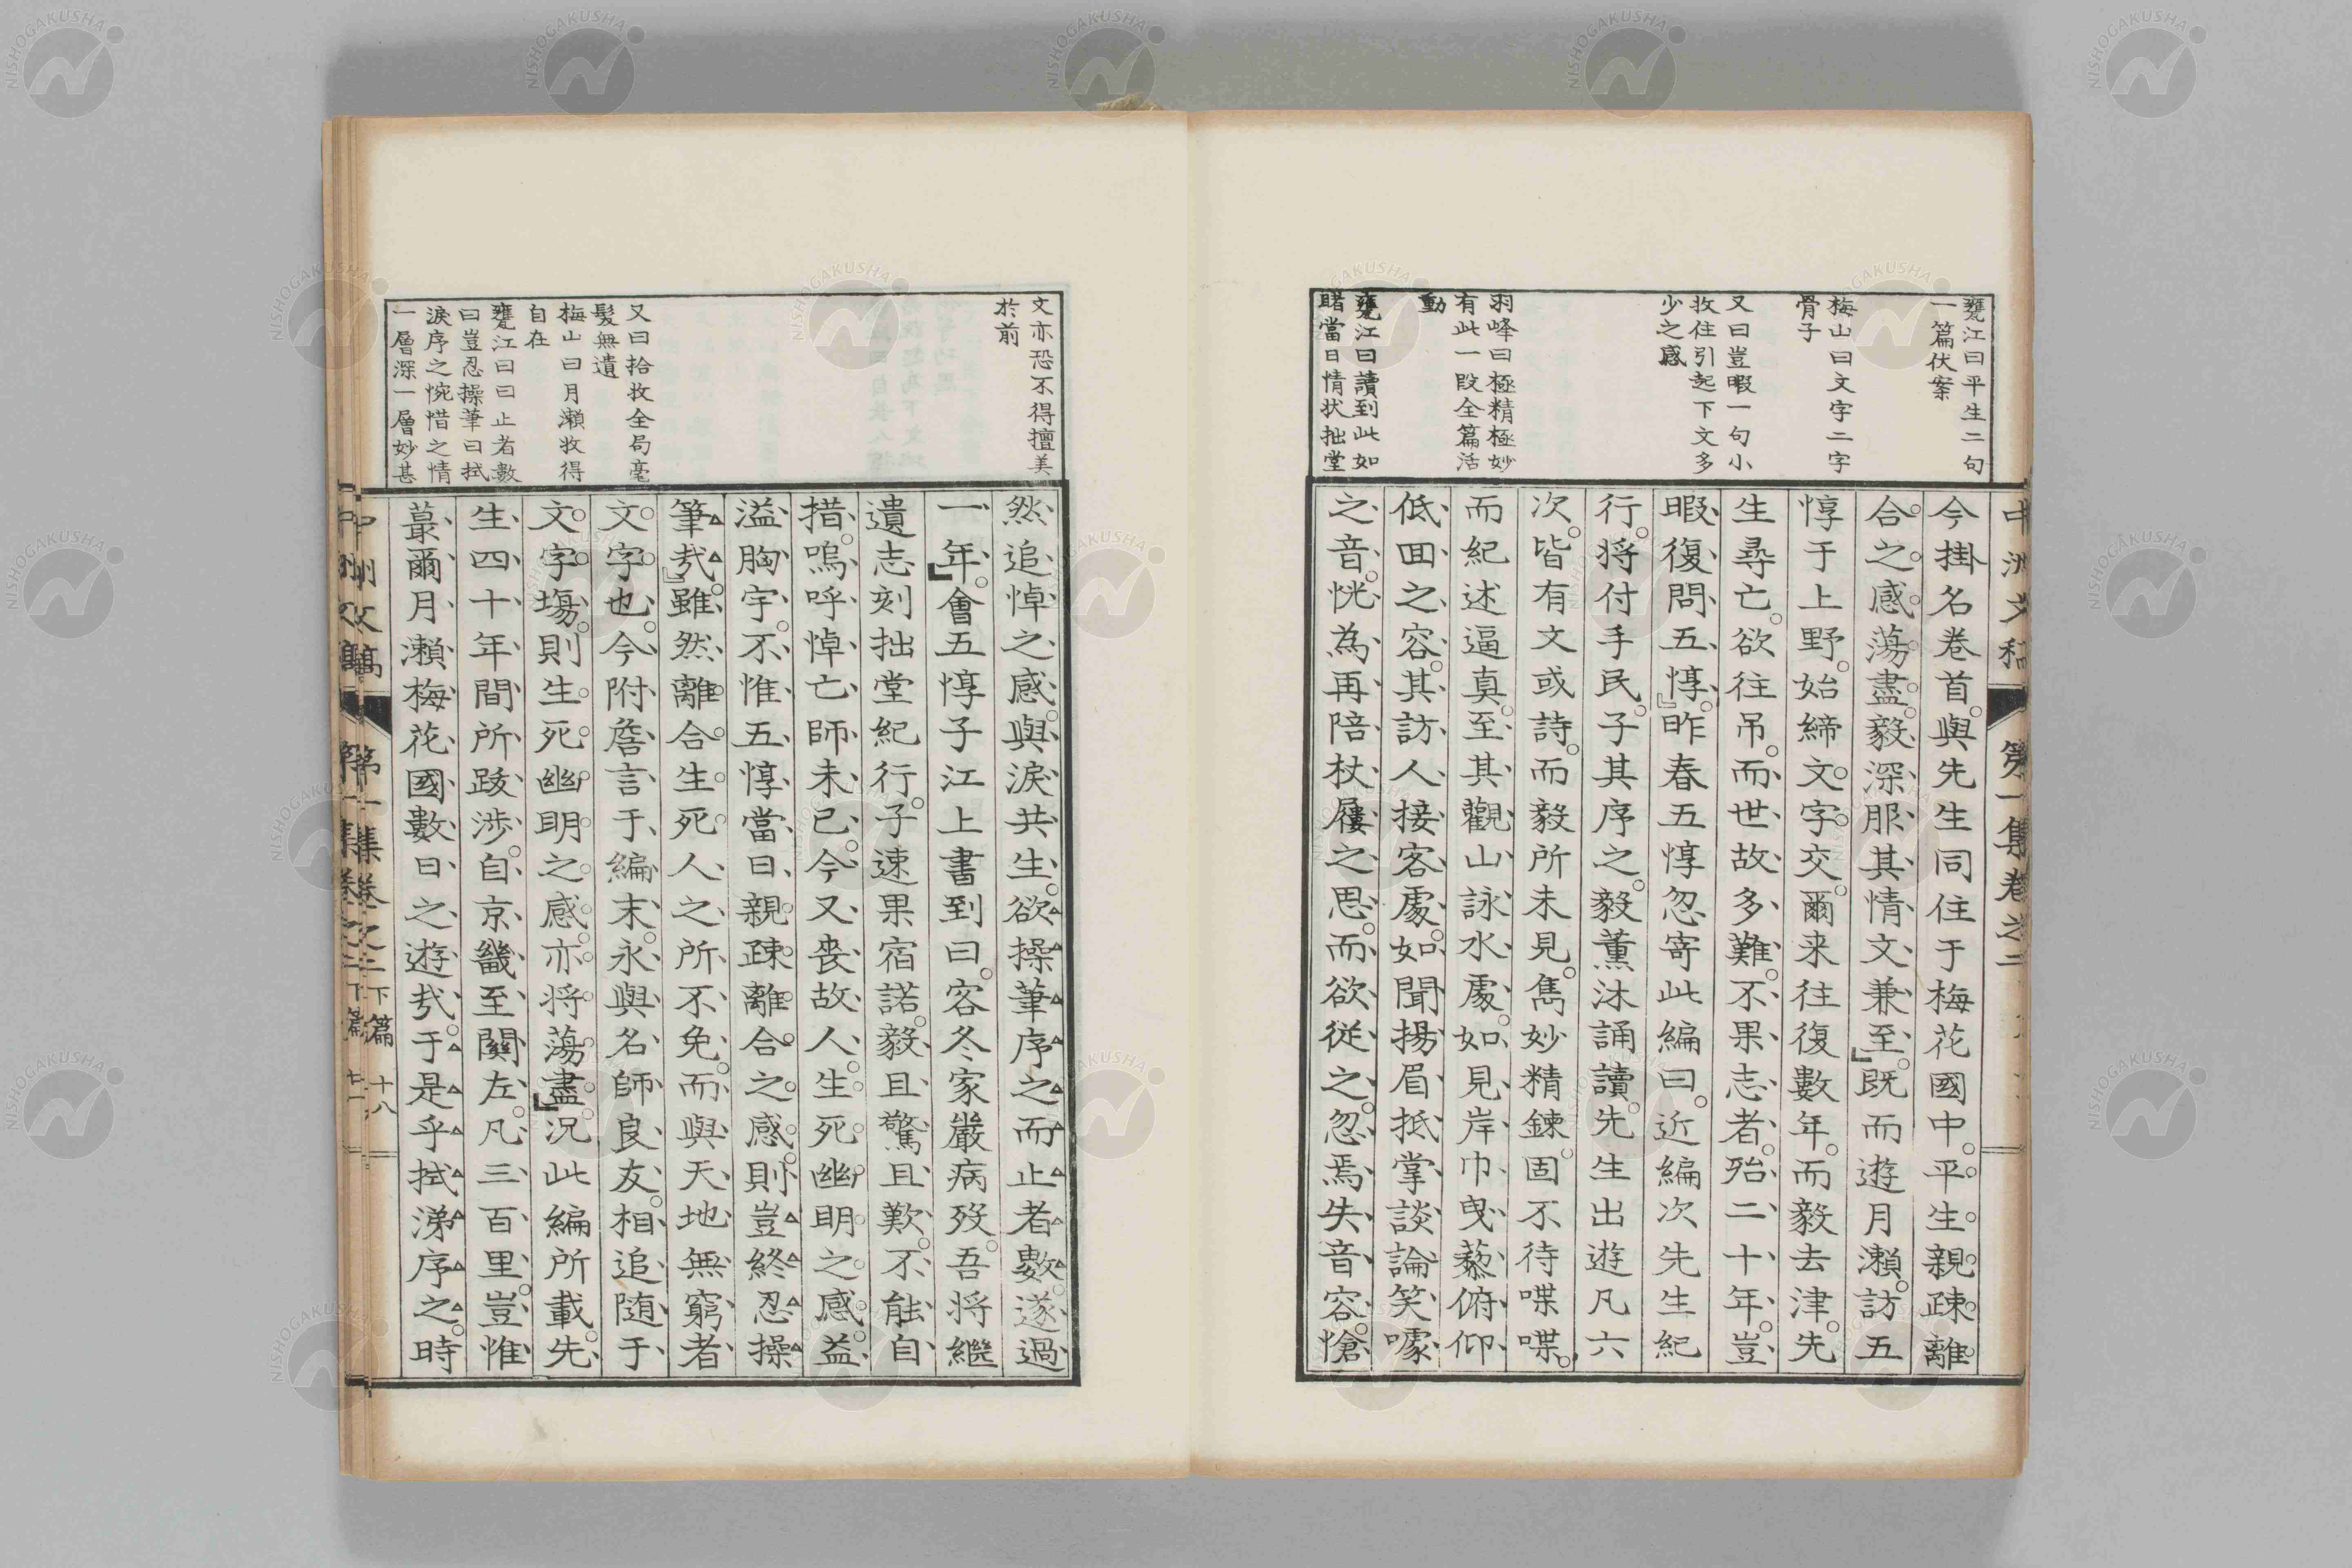 甕江曰平生二句
一篇伏案
梅山曰文字二字
骨子
又曰豈暇一句小
收住引起下文多
少之感
羽峰曰極精極妙
有此一段全篇活
動
甕江曰讀到此如
睹當日情状拙堂
今掛名卷首。與先生同住于梅花國中。平生親疎離
合之感。蕩盡。毅深服其情文兼至。』既而遊月瀨。訪五
惇于上野。始締文字交。爾来往復數年。而毅去津。先
生尋亡。欲往吊。而世故多難。不果志者。殆二十年。豈
暇復問五惇。』昨春五惇忽寄此編曰。近編次先生紀
行。將付手民。子其序之。毅薰沐誦讀。先生出遊凡六
次。皆有文或詩。而毅所未見。雋妙精鍊。固不待喋喋。
而紀述逼真。至其觀山詠水處。如見岸巾曳藜俯仰
低回之容。其訪人接客處。如聞揚眉抵掌談論笑噱
之音。恍為再陪杖屨之思。而欲従之。忽焉失音容。愴
第一集卷之二
文亦恐不得擅美
於前
又曰拾收全局毫
髮無遺
梅山曰月瀨收得
自在
甕江曰曰止者數
曰豈忍操筆曰拭
淚序之惋惜之情
一層深一層妙甚
然追悼之感。與淚共生。欲操筆序之而止者數。遂過
一年。』會五惇子江上書到曰。客冬家嚴病歿。吾將繼
遺志刻拙堂紀行。子速果宿諾。毅且驚且歎。不能自
措。嗚呼悼亡師未已。今又喪故人。生死幽明之感。益
溢胸宇。不惟五惇當日親疎離合之感。則豈終忍操
筆㦲。』雖然離合生死。人之所不免。而與天地無窮者
文字也。今附詹言于編末。永與名師良友。相追随于
文字塲。則生死幽明之感。亦將蕩盡。』況此編所載先
生四十年間所跋渉。自京畿至關左。凡三百里。豈惟
蕞爾月瀨梅花國數日之遊㦲。于是乎拭涕序之。時
中洲文稿 第一集卷之二下篇 十八